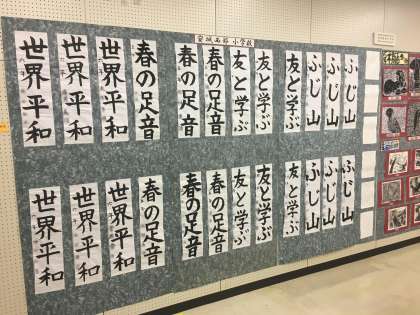 安城西部 小学校
ふじ山
ふじ山
ふじ山
友と学ぶ
友と学ぶ
友と学ぶ
春の足音
春の足音
春の足音
世界平和
世界平和
世界平和
ふじ山
ふじ山
ふじ山
友と学ぶ
友と学ぶ
友と学ぶ
春の足音
春の足音
春の足音
世界平和
世界平和
世界平和